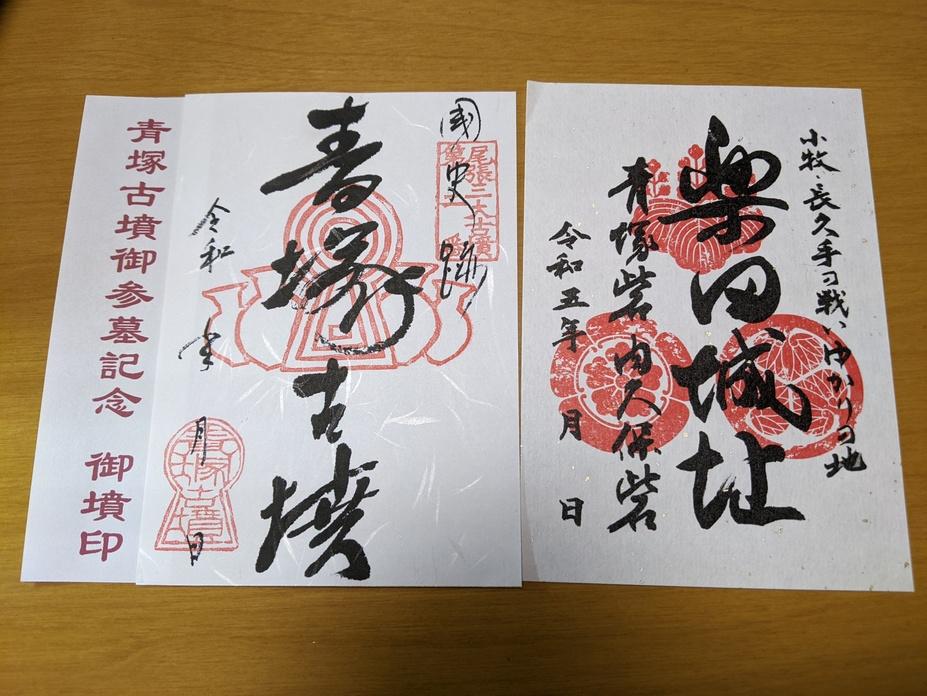 小牧・長久手の戦いゆかりの地
楽田城址
青塚砦内久保砦
令和五年 月 日
国史跡
尾張二大古墳
第一番
青塚古墳
令和 年 月 日
青塚古墳
青塚古墳御参墓記念 御墳印